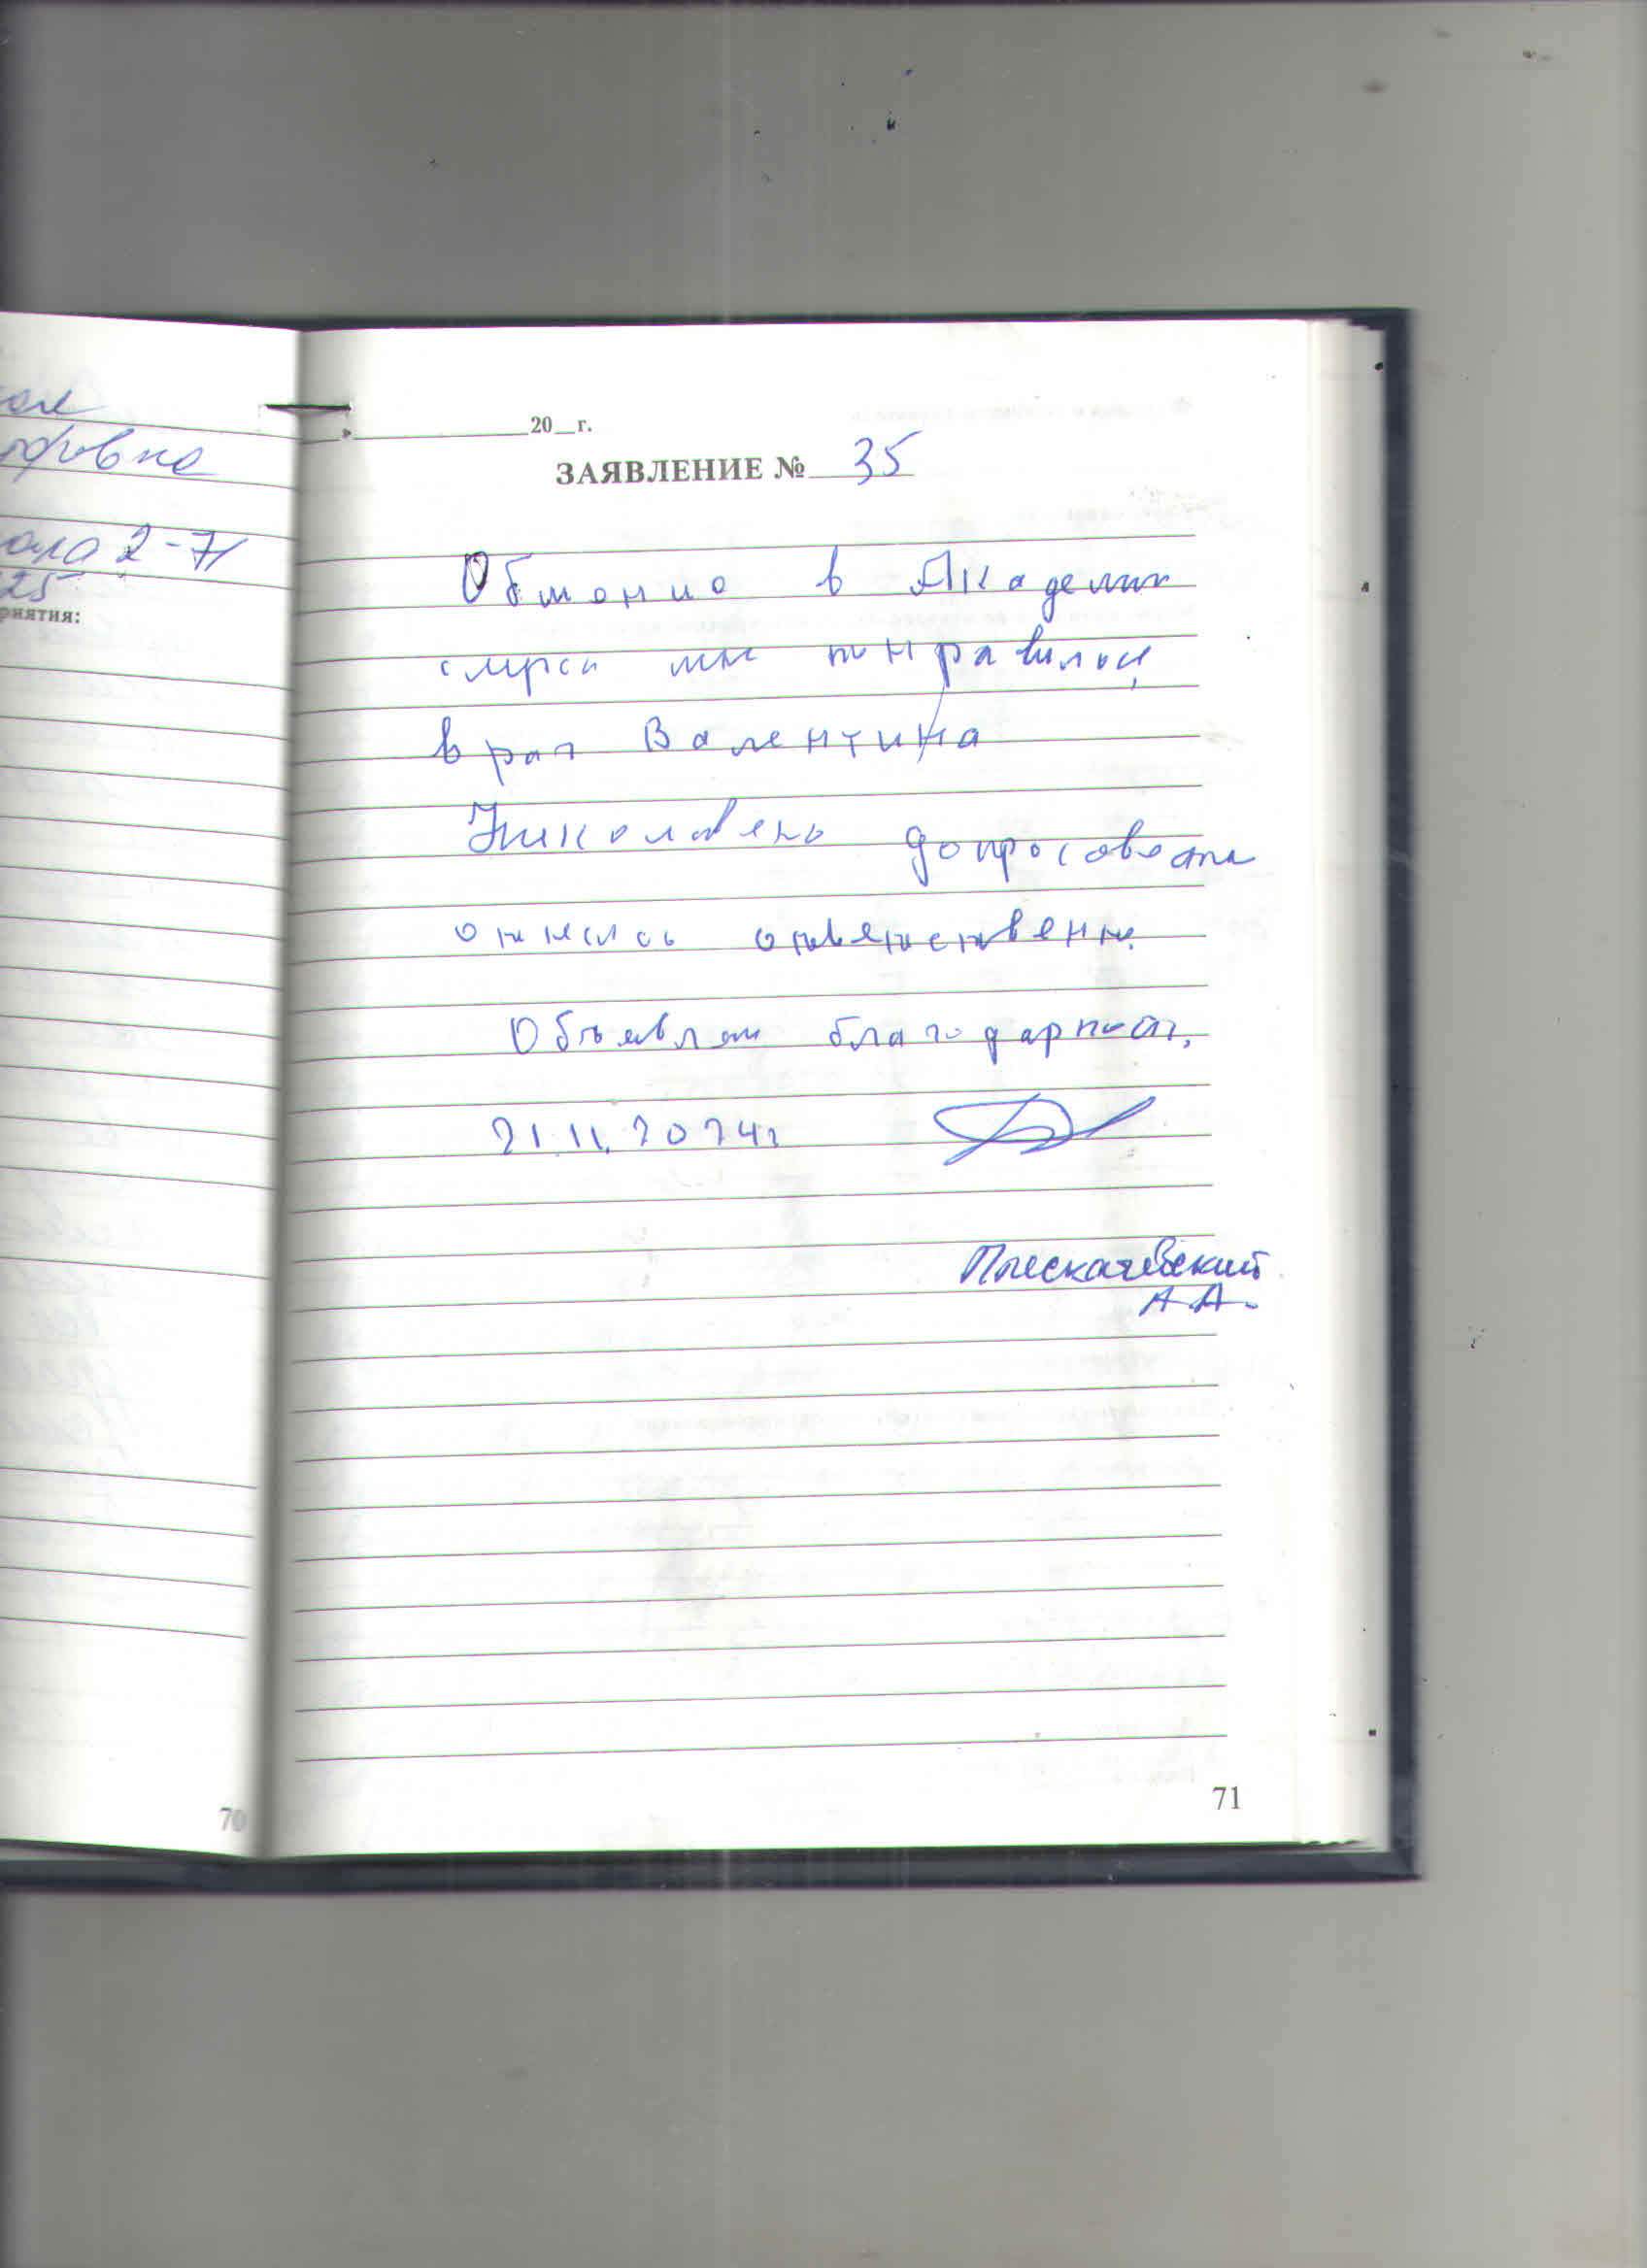 офовна
ола 2-71
25
риятия:
70
20__г.
ЗАЯВЛЕНИЕ № 35
в Академии
мне понравился,
врач Валентина
Николаевна добросовестн
отнеслась ответственно.
Объявляю благодарность,
21.11.2024г
Плескачевский
А.А.
71